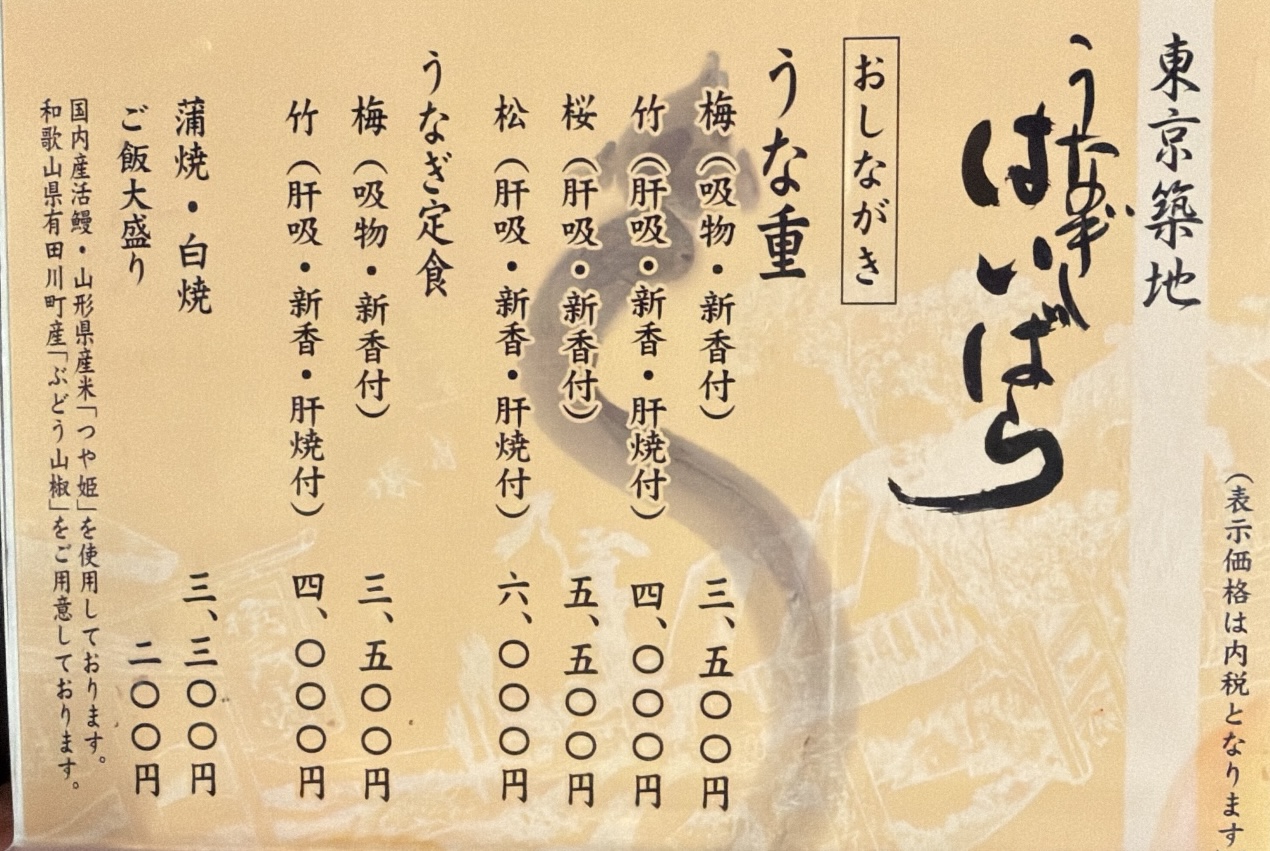 （表示価格は内税となります
東京築地
うなぎ
はいばら
おしながき
うな重
梅（吸物・新香付） 三、五〇〇円
竹（肝吸・新香・肝焼付） 四、〇〇〇円
桜（肝吸・新香付） 五、五〇〇円
松（肝吸・新香・肝焼付） 六、〇〇〇円
うなぎ定食
梅（吸物・新香付） 三、五〇〇円
竹（肝吸・新香・肝焼付） 四、〇〇〇円
蒲焼・白焼 三、三〇〇円
ご飯大盛り 二〇〇円
国内産活鰻・山形県産米「つや姫」を使用しております。
和歌山県有田川町産「ぶどう山椒」をご用意しております。